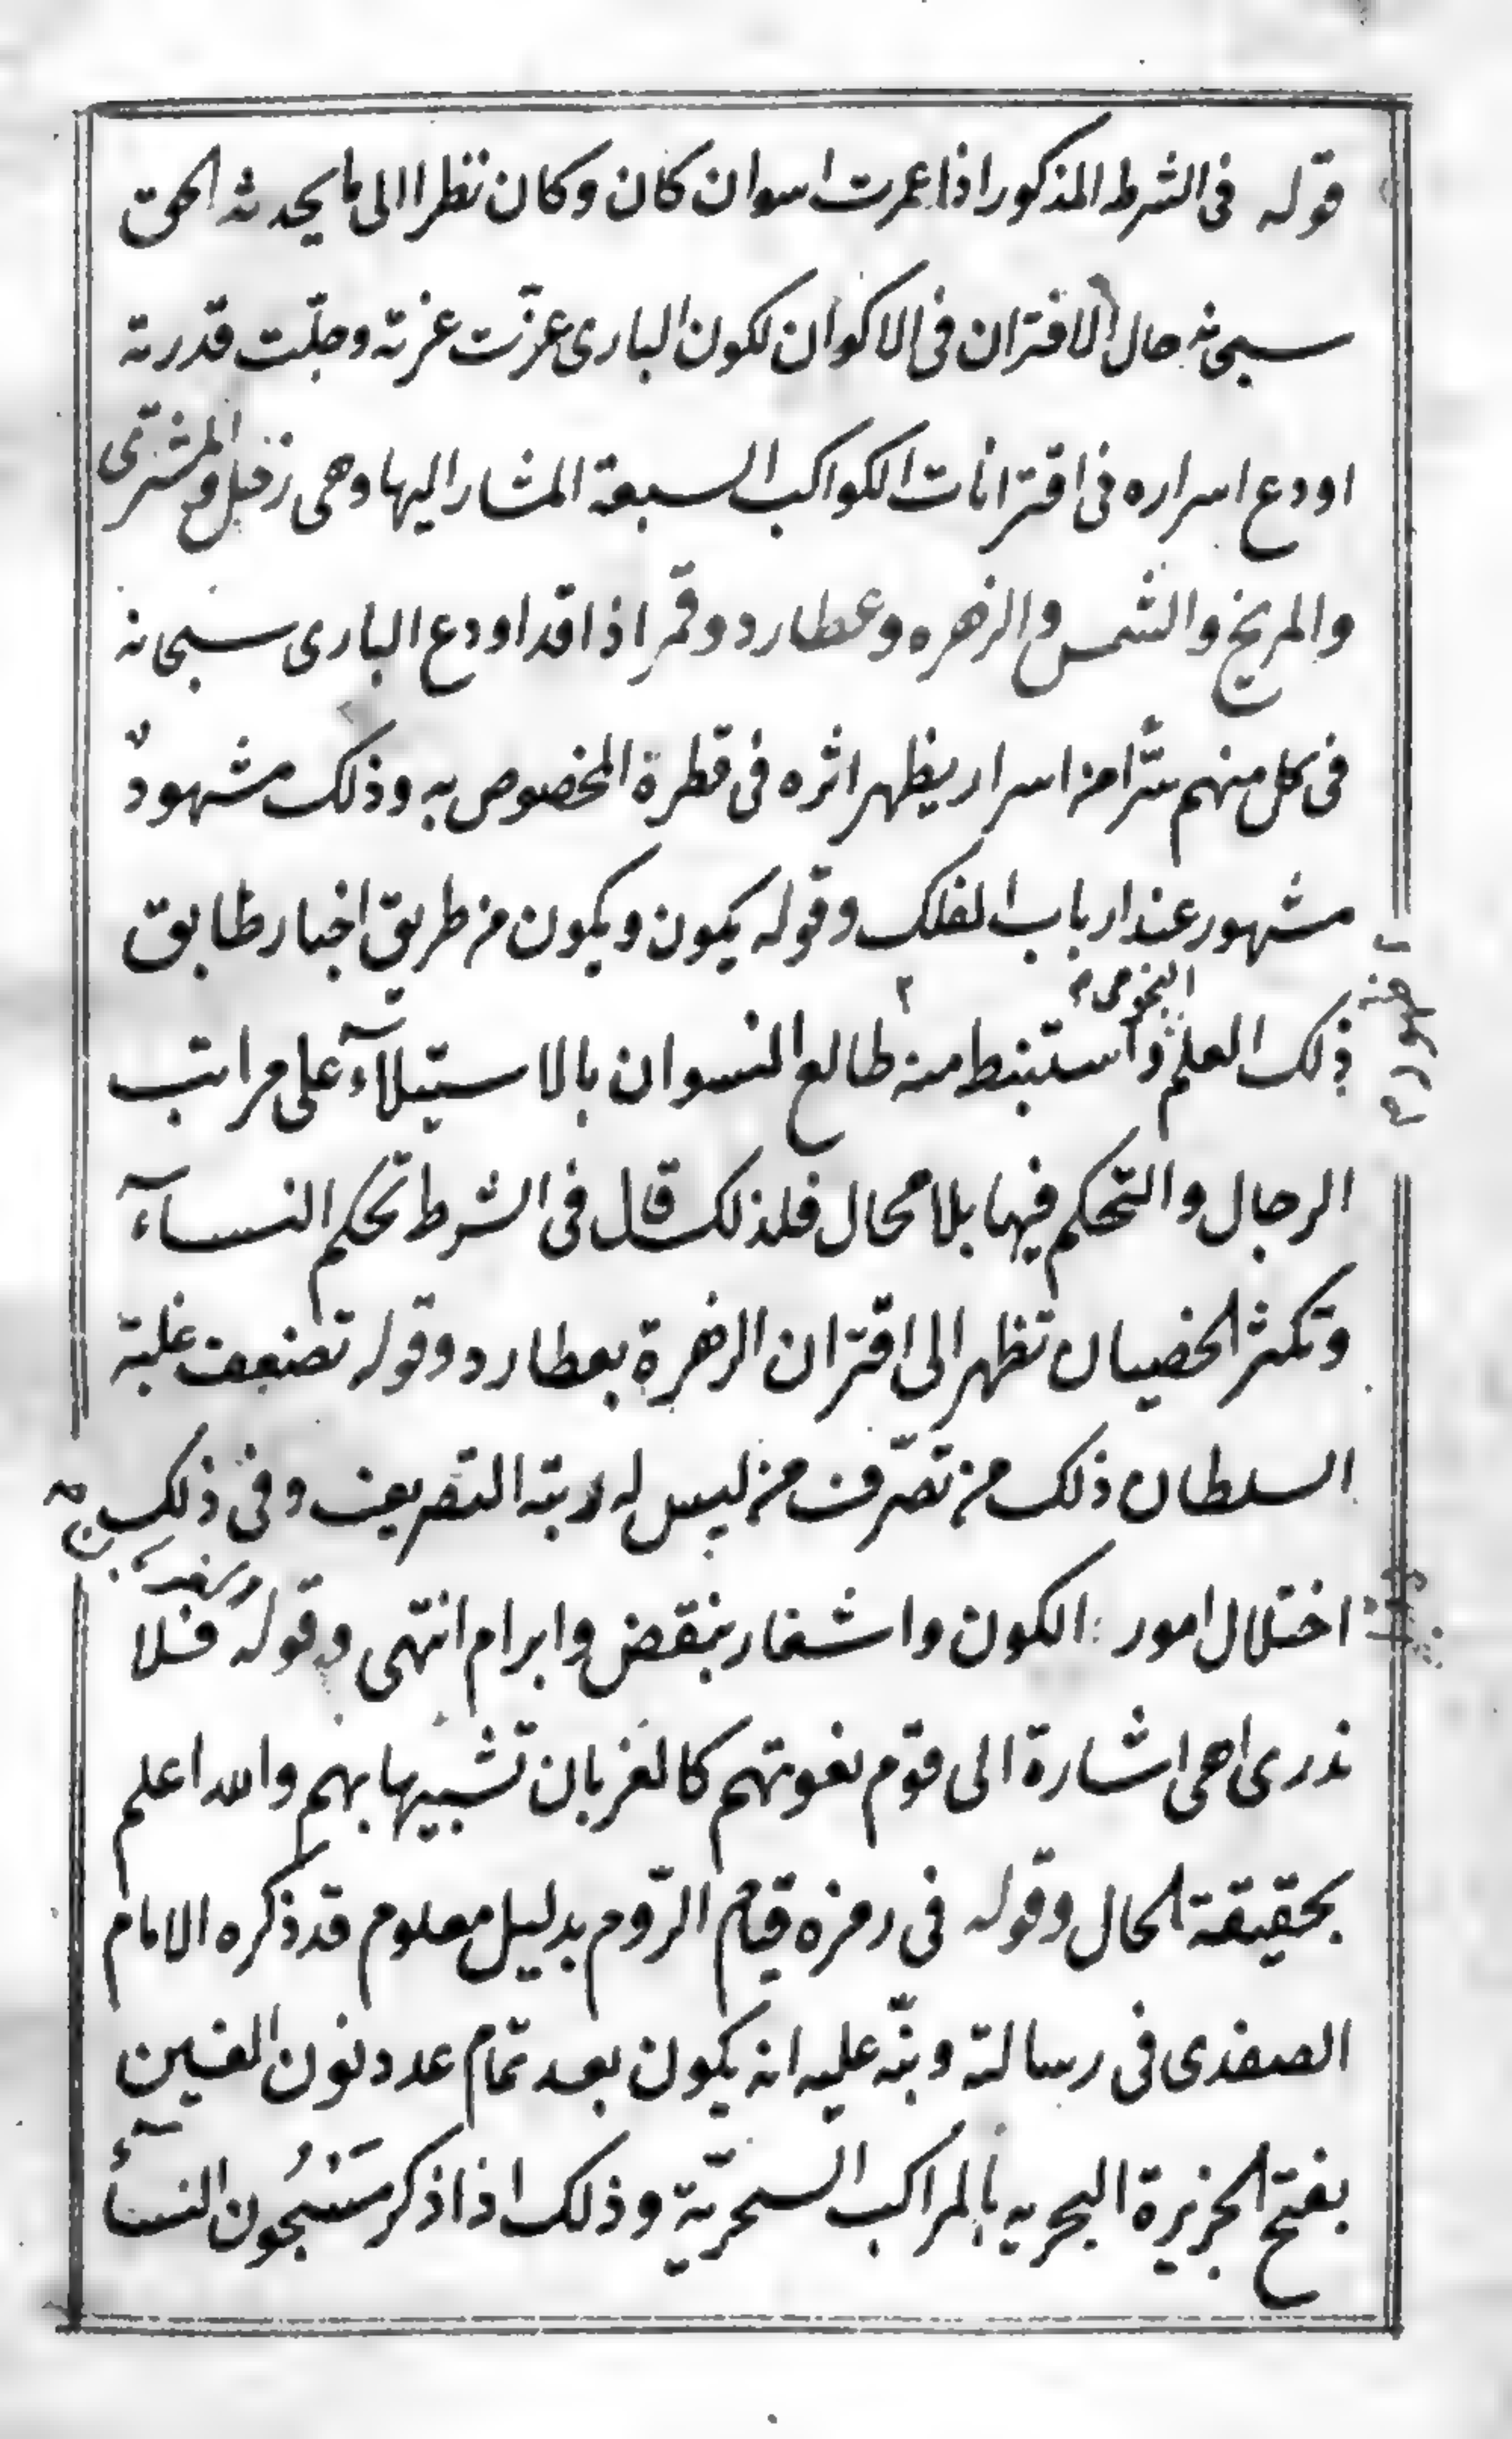 قوله فى الشرط المذكور اذا عمرت اسوان كان وكان نظرا الى ما يحدثه الحق
سبحانه حال الاقتران فى الاكوان لكون البارى عزّت عزته وجلّت قدرته
اودع اسراره فى اقترانات الكواكب السبعة المشار اليها وهى زحل والمشترى
والمريخ والشمس والزهره وعطارد وقمر اذا قد اودع البارى سبحانه
فى كل منهم سرّا من اسرار يظهر اثره فى قطرة المخصوص به وذلك مشهودٌ
مشهور عند ارباب الفلك وقوله يكون ويكون من طريق اخبار طابق
النجومى
ذلك العلم واستنبط منه طالع النسوان بالاستيلآء على مراتب
الرجال والتحكم فيها بلا محال فلذلك قال فى الشرط تحكم النسآء
وتكثر الخصيان تظهر الى اقتران الزهرة بعطارد وقوله تضعف غلبة
السلطان ذلك من تصرّف من ليس له رتبة التصريف وفى ذلك
اختلال امور الكون واشعار بنقض وابرام انتهى وقوله فلا
ندرى اهى اشارة الى قوم نعوتهم كالغربان تشبيها بهم والله اعلم
بحقيقة الحال وقوله فى رمزه قيام الرّوم بدليل معلوم قد ذكره الامام
الصفدى فى رسالته ونبّه عليه انه يكون بعد تمام عدد نون الغين
بفتح الجزيرة البحريه بالمراكب السحريّة وذلك اذا ذكر مَسْجُون النسآء